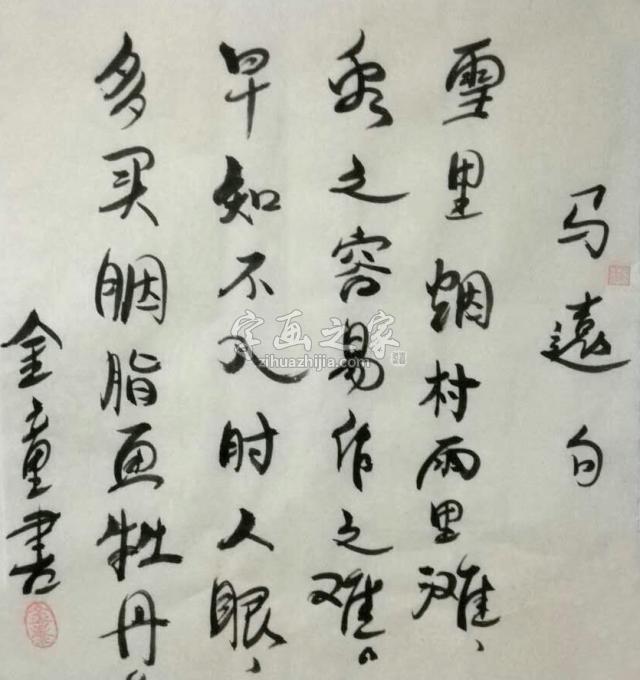 马遠句
雪里烟村雨里滩、
看之容易作之难。
早知不入时人眼、
多买胭脂画牡丹。
金童書
字画之家
zihuazhijia.com